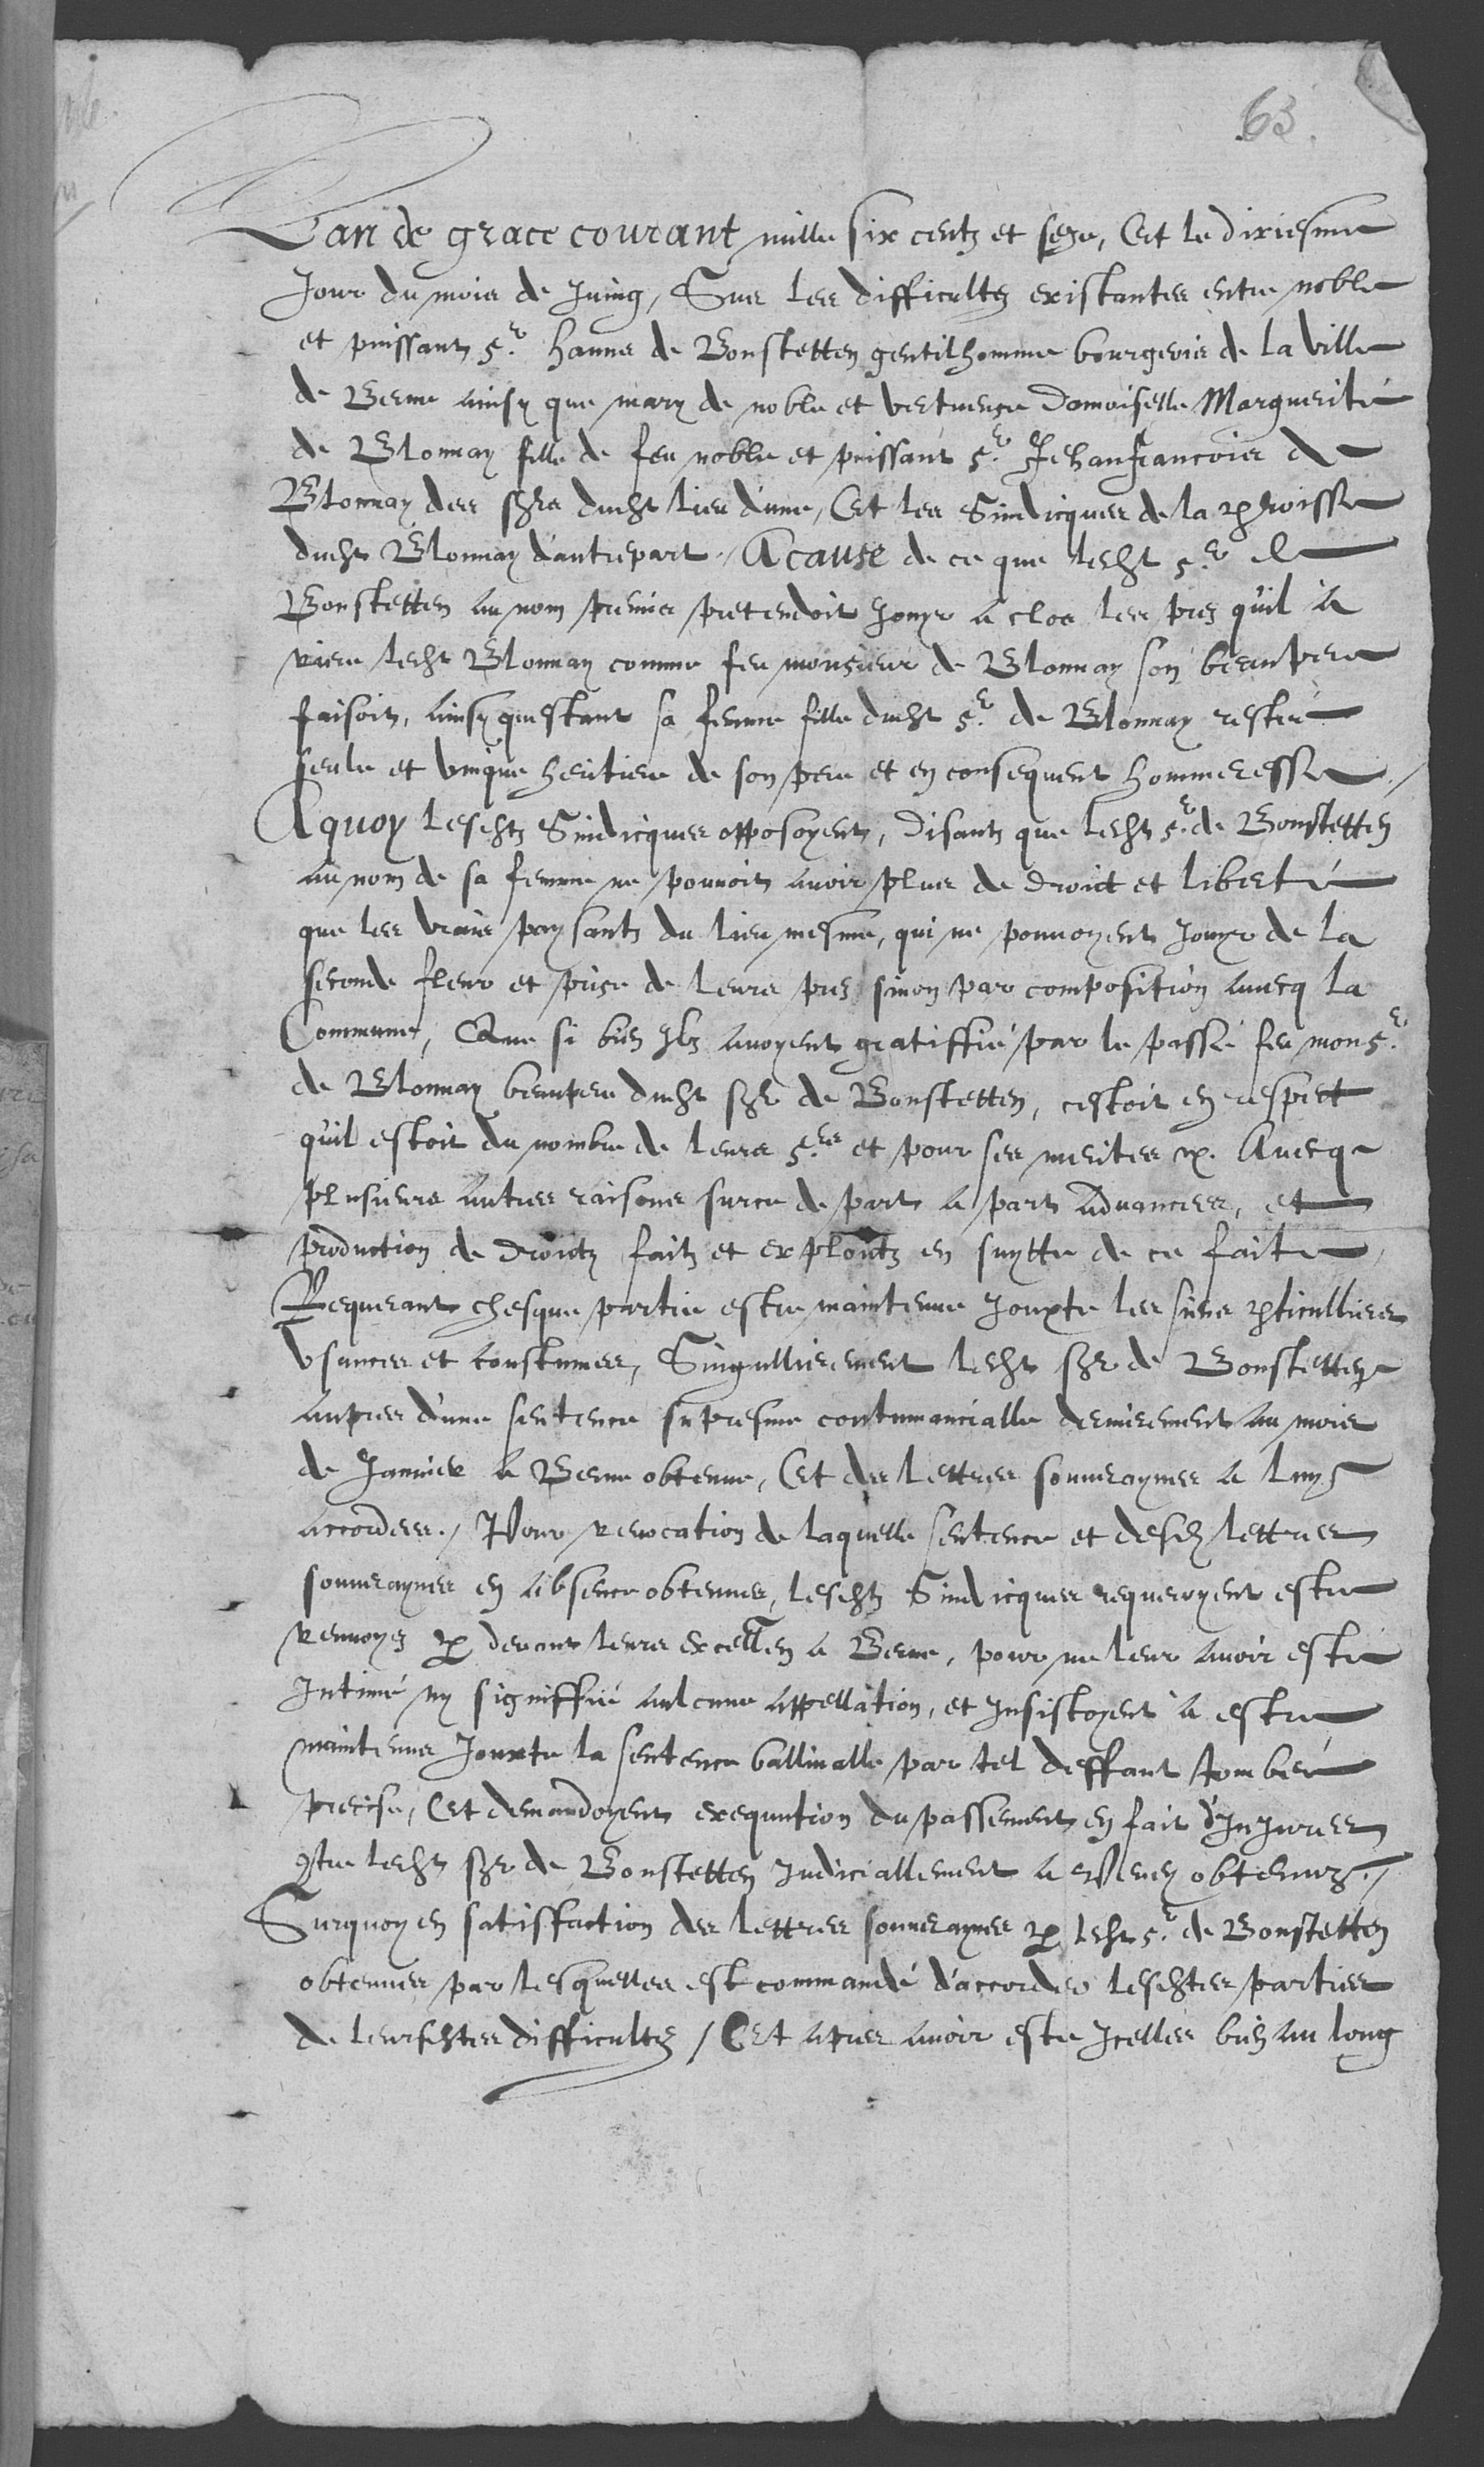 63.
Lan de grace courant mille six centz et seze, Et le dixiesme
Jour du mois de Juing, Sus les difficultez existantes entre noble
et puissant Sr. hanns de Bonstetten gentilhomme bourgeois de la ville
de Berne ainsy que mary de noble et vertueuse Damoiselle Marguerite
de Blonnay fille de feu noble et puissant Sr. Jehan francois de
Blonnay des sgrs dudt lieu dune, Et les Sindicques de la parroisse
dudt Blonnay dautrepart. A cause de ce que ledt Sr. de
Bonstetten au nom premis pretendoit Jouyr a clos les prez quil a
riere ledt Blonnay comme feu monsieur de Blonnay son beaupere
faisoit, ainsy questant sa femme fille dudt Sr. de Blonnay restee
seule et vnique heritiere de son pere et en consequent hommeresse./
A quoy lesdtz Sindicques opposoyent, disants que ledt Sr. de Bonstetten
au nom de sa femme ne pouuoit auoir plus de droict et liberté
que les vrais paysants du lieu mesme, qui ne pouuoyent Jouyr de la
seconde fleur et prise de leurs prez sinon par composition auecq la
Commune, Que si bien Ilz auoyent gratiffié par le passé feu monSr.
de Blonnay beaupere dudt sgr de Bonstetten, cestoit en respect
quil estoit du nombre de leurs Srs et pour ses merites &c. Auecq
plusieurs autres raisons surce de part a part aduancees, et
production de droictz faitz et exploictz en suytte de ce faite,
Requerant chesque partie estre maintenue Jouxte les siens particulliers
vsances et coustumes, Singullierement ledt sgr de Bonstetten
aupres dune sentence supresme contumancialle dernierement au mois
de Januier a Berne obtenue, Et des lettres souueraynes a luy
accordees./ Pour reuocation de laquelle sentence et desd. lettres
souueraynes en absence obtenues, lesdtz Sindicques requeroyent estre
renuoyez par deuant leurs excellen a Berne, pour ne leur auoir esté
Intimé ny signiffié aulcune appellation, et Insistoyent a estre
maintenus Jouxte la sentence balliualle par tel deffaut tombée
precise, Et demandoyent exequution du passement en fait d'Injures
contre ledt sgr de Bonstetten Judiciallement a Veuey obtenuz./
Surquoy en satisfaction des lettres souueraynes par ledt Sr. de Bonstetten
obtenues par lesquelles est commandé d'accorder lesdtes parties
de leursdtes difficultez / Et apres auoir este Icelles bien au long